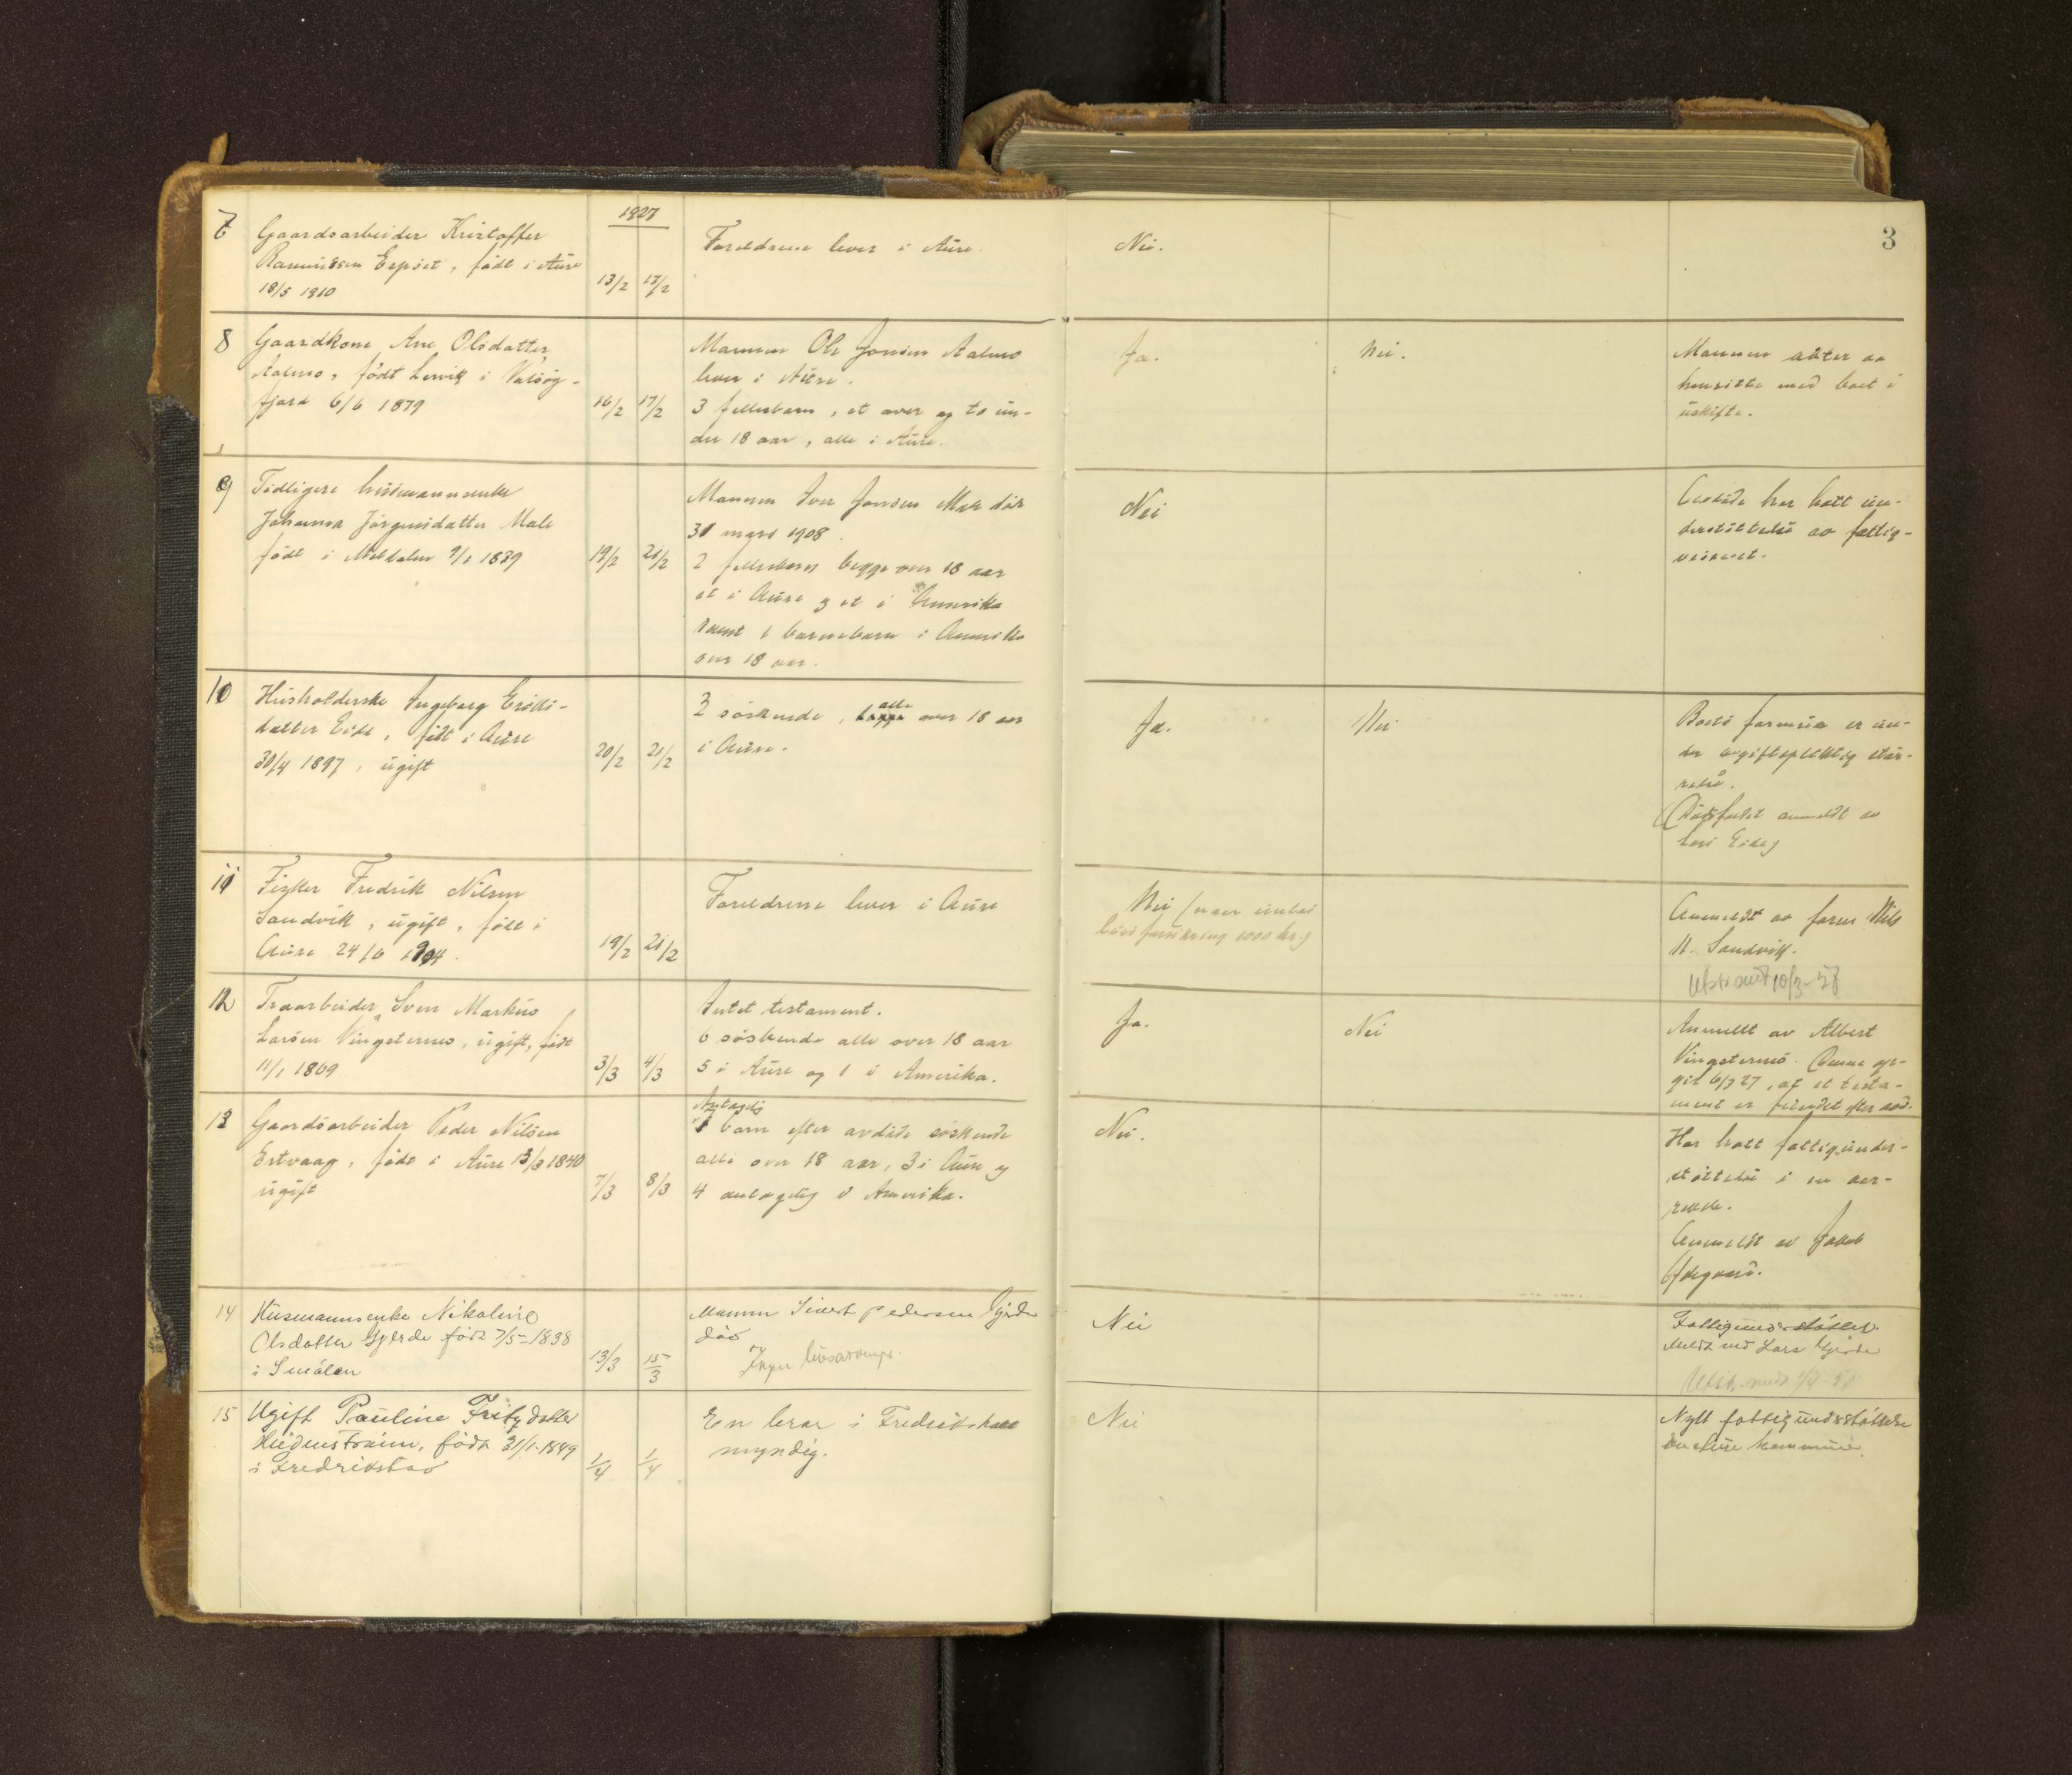 1927
3
7 Gaardsarbeider Kristoffer
Rasmussen Espset, født i Aure
18/5 1910
13/2 17/2
Foreldrene lever i Aure.
Nei.
8 Gaardkone Ane Olsdatter
Aalmo, født Lervik i Valsøy-
fjord 6/6 1879
16/2 17/2
Mannen Ole Jonsen Aalmo
lever i Aure.
3 fellesbarn, et over og to un-
der 18 aar, alle i Aure.
Ja.
Nei.
Mannen akter aa
hensitte med boet i
uskifte.
9 Tidligere husmannsenke
Johanna Jørgensdatter Male
født i Meldalen 9/1 1839
19/2 21/2
Mannen Iver Jonsen Male død
31 mars 1908.
2 fellesbarn begge over 18 aar
et i Aure og et i Amerika
samt 1 barnebarn i Amerika
over 18 aar.
Nei
Avdøde har hatt un-
derstøttelse av fattig-
vesenet.
10 Husholderske Ingeborg Eriks-
datter Eide, født i Aure
30/4 1897, ugift
20/2 21/2
3 søskende, alle over 18 aar
i Aure.
Ja.
Nei
Boets formue er un-
der avgiftspliktig stør-
relse.
(Dødsfallet anmeldt av
Lars Eide)
11 Fisker Fredrik Nilsen
Sandvik, ugift, født i
Aure 24/6 1904.
19/2 21/2
Foreldrene lever i Aure
Nei (naar undtas
livsforsikring 1000 kr.)
Anmeldt av faren Nils
N. Sandvik.
Utskrevet 10/3-27
12 Traaarbeider Sven Markus
Larsen Vingsternes, ugift, født
11/1 1869
3/3 4/3
Intet testament.
6 søskende alle over 18 aar
5 i Aure og 1 i Amerika.
Ja.
Nei
Anmeldt av Albert
Vingsternes. Denne op-
gir 6/3 27, at et testa-
ment er fundet efter avd.
13 Gaardsarbeider Peder Nilsen
Ertvaag, født i Aure 13/3 1840
ugift
7/3 8/3
Antagelig
7 barn efter avdøde søskende
alle over 18 aar, 3 i Aure og
4 antagelig i Amerika.
Nei.
Har hatt fattigunder-
støttelse i en aar-
rekke.
Anmeldt av Jakob
Ødegaard.
14 Husmannsenke Nikoline
Olsdatter Gjerde født 7/5-1838
i Smølen
13/3 15/3
Mannen Sivert Pedersen Gjerde
død
Ingen livsarvinger.
Nei
Fattigunderstøttet.
Meldt ved Lars Gjerde
15 Ugift Pauline Fritzdatter
Heidenstrøm, født 31/1-1849
i Fredrikstad
1/4 1/4
En bror i Fredrikshald
myndig.
Nei
Nytt fattigunderstøttelse
av Aure kommune.